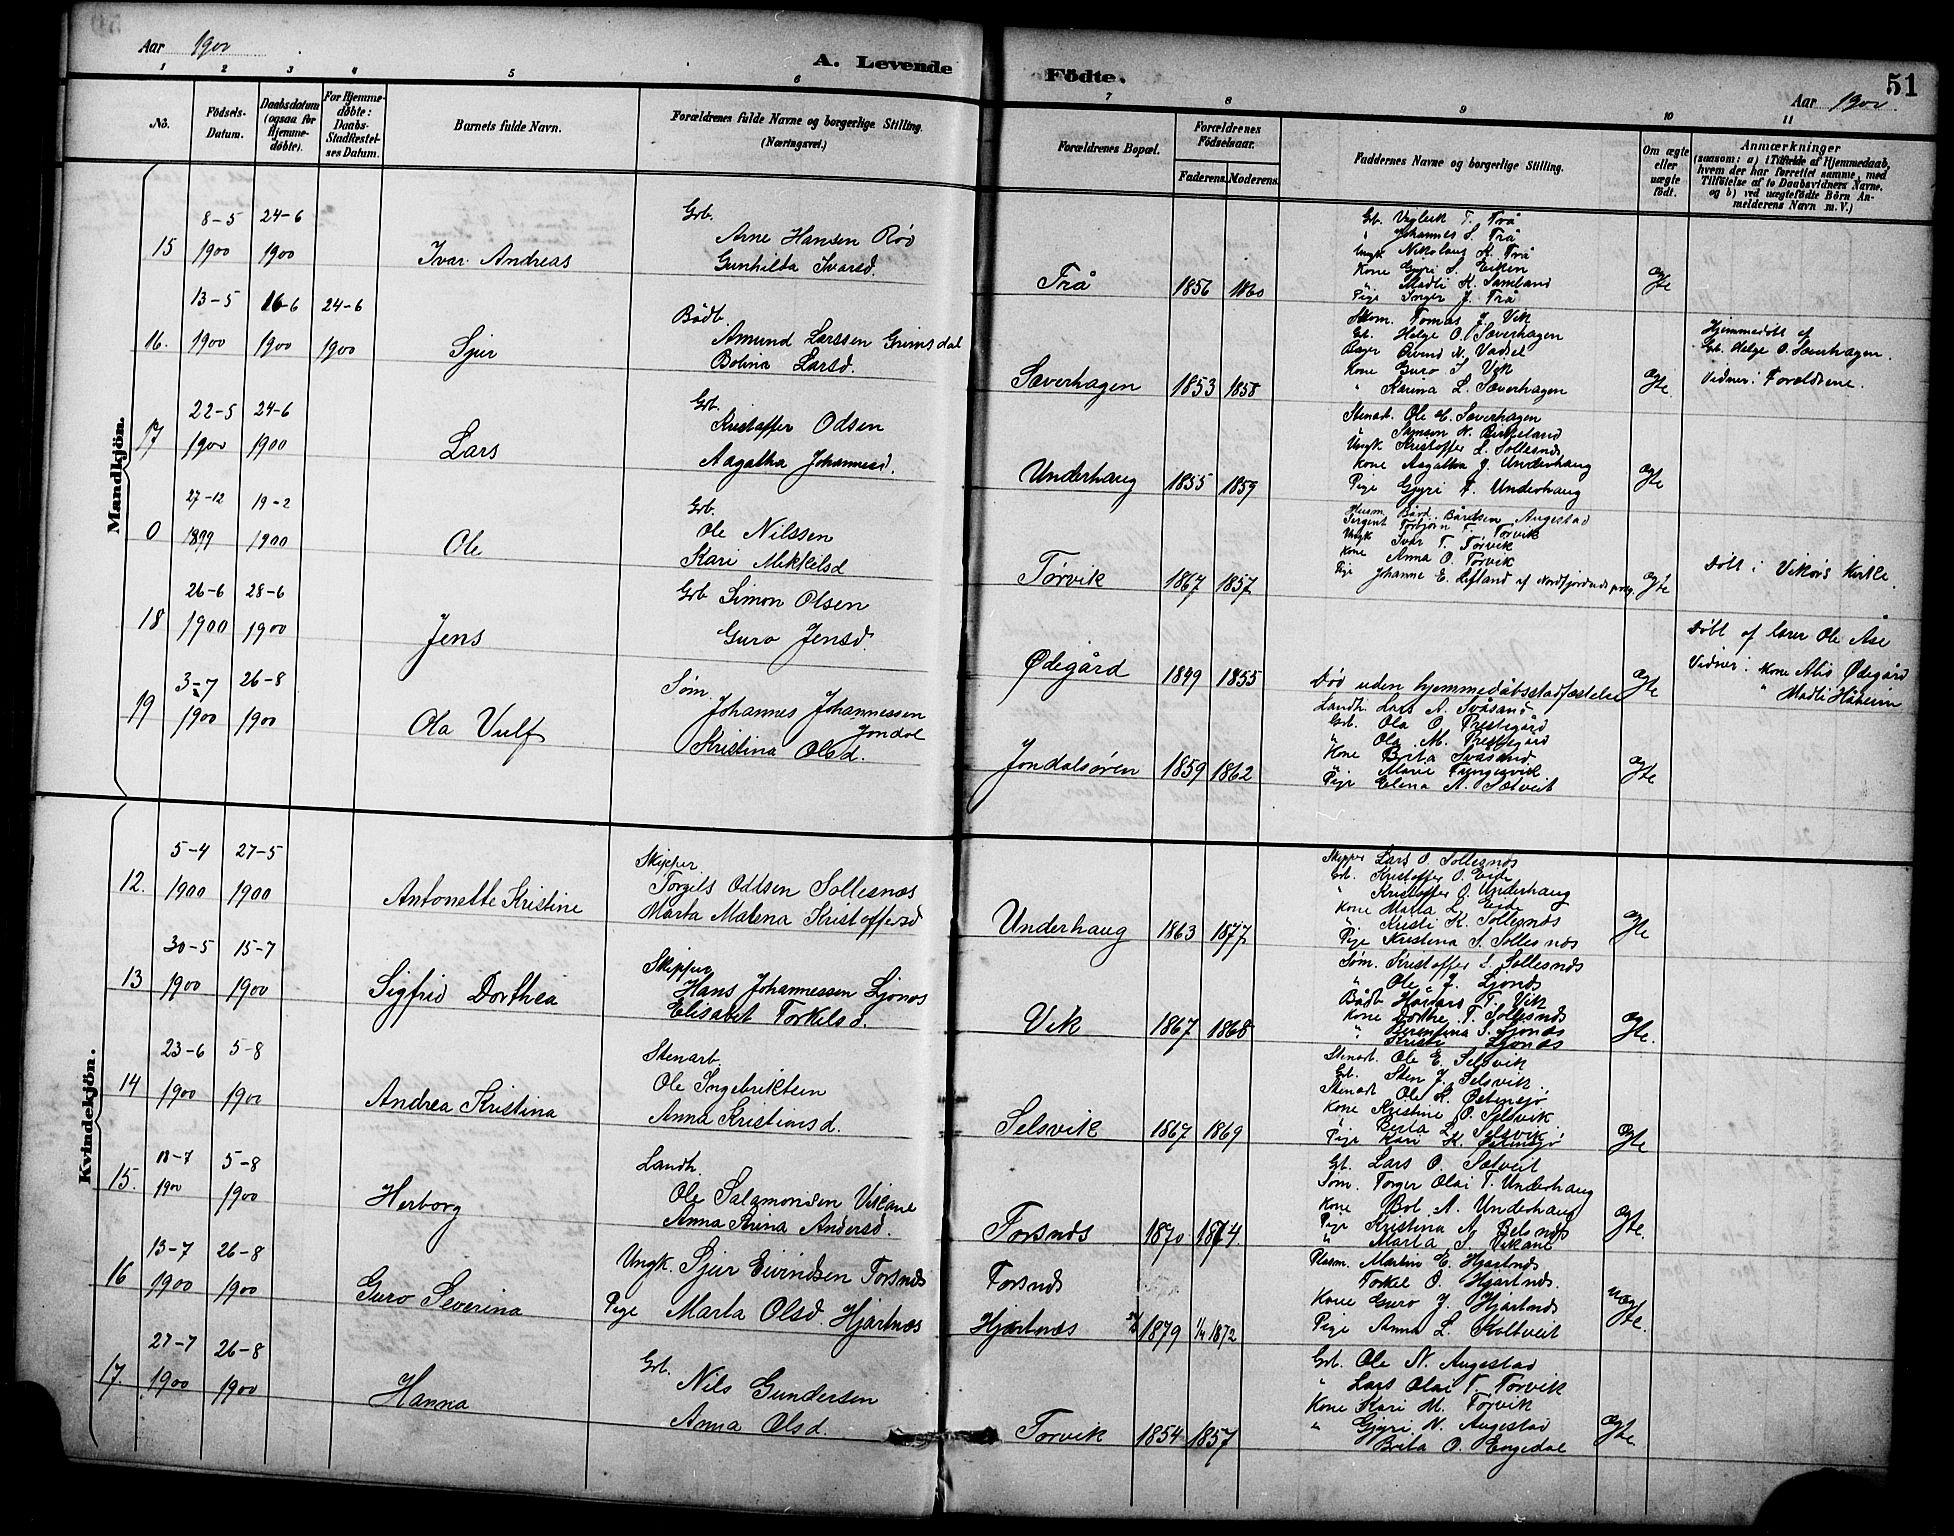 Aar 1900
A. Levende Födte.
51
Aar 1900
1 2 3 4 5 6 7 8 9 10 11
No.
Födsels-Datum.
Daabsdatum (ogsaa for Hjemmedöbte).
For Hjemmedöbte: Daabs-Stadfæstelses Datum.
Barnets fulde Navn.
Forældrenes fulde Navne og borgerlige Stilling. (Næringsvei.)
Forældrenes Bopæl.
Forældrenes Födselsaar.
Faderens. Moderens.
Faddernes Navne og borgerlige Stilling.
Om ægte eller uægte födt.
Anmærkninger
(saasom: a) i Tilfælde af Hjemmedaab, hvem der har forrettet samme, med Tilföielse af to Daabsvidners Navne. og b) ved uægtefödte Börn Anmelderens Navn m. V.)
Mandkjön.
15
8-5 1900
24-6 1900
Ivar Andreas
Grb.
Arne Hansen Röd
Gunhilda Ivarsd.
Trå
1856
Gb. Vigleik T. Trå
" Johannes S. Trå
Ungk Nikolaus K. Trå
Kone Guri S. Eiken
" Madli K. Samland
Pige Inger J. Trå
Ægte
16.
13-5 1900
16-6 1900
24-6 1900
Sjur
Bådb.
Amund Larssen Grimsdal
Bolina Larsd.
Sæverhagen
1853 1858
Tomas J. Vik
Gb. Helge O. Sæverhagen
Eivind N. Vadsel
Kone Guro I. Vik
" Karina L. Sæverhagen
Ægte.
Hjemmedöbt af
Grb. Helge O. Sæverhagen.
Vidner: Forældrene.
17
22-5 1900
24-6 1900
Lars
Grb.
Kristoffer Odsen
Aagatha Johannesd.
Underhaug
1855 1859
Stenarb. Ole H. Sæverhagen
" Samson N. Birkeland
Ungk Kristoffer L. Sollesnæs
Kone Aagatha J. Underhaug
Pige Gjyri T. Underhaug
Ægte
0
27-12 1899
19-2 1900
Ole
Grb.
Ole Nilssen
Kari Mikkelsd
Törvik
1867 1857
Husm. Bård Bårdsen Augestad
Sergent Torbjörn T. Törvik
Ungk Ivar T. Törvik
Kone Anna O. Törvik
Pige Johanne E. Lifland af Nordfjordeids prg.
Ægte
Döbt i Vikörs Kirke.
18
26-6 1900
28-6 1900
Jens
Grb Simon Olsen
Guro Jensd.
Ødegård
1849 1855
Död uden hjemmedåbsstadfæstelse
Ægte
Döbt af lærer Ole Åse
Vidner: Kone Alis Ødegård
" Madli Håheim
19
3-7 1900
26-8 1900
Ola Vulf
Söm.
Johannes Johannessen Jondal
Kristina Olsd.
Jondalsören
1859 1862
Landh. Lars A. Svåsand
Grb. Ola O. Prestegård
" Ola M. Prestegård
Kone Brita Svåsand
" Marie Tungesvik
Pige Elena A. Sætveit
Ægte
Kvindekjön.
12.
5-4 1900
27-5 1900
Antonette Kristine
Skipper
Torgils Oddsen Sollesnæs
Marta Malena Kristoffersd
Underhaug
1863 1877
Skipper Lars O. Sollesnæs
Grb. Kristoffer O. Eide
" Kristoffer O. Underhaug
Kone Marta L. Eide
" Kristi K. Sollesnæs
Pige Kristina S. Sollesnæs
Ægte
13
30-5 1900
15-7 1900
Sigfrid Dorthea
Skipper
Hans Johannessen Ljonæs
Elisabet Torkelsd.
Vik
1867 1868
Söm. Kristoffer L. Sollesnæs
" Ole J. Ljonæs
Bådb Håvard T. Vik
Kone Dorthe T. Sollesnæs
" Berentina S. Ljonæs
Kristi Ljonæs
Ægte.
14
23-6 1900
5-8 1900
Andrea Kristina
Stenarb.
Ole Ingebriktsen
Anna Kristiansd.
Selsvik
1867 1869
Stenarb. Ole E. Selsvik
Gb. Sten J. Selsvik
Stenarb Ole K. Östensjö
Kone Kristine O. Selsvik
" Brita L. Selsvik
Pige Kari K. Östensjö
Ægte
15.
18-7 1900
5-8 1900
Herborg
Landh.
Ole Salamonsen Vikane
Anna Stina Andersd.
Torsnæs
1870 1874
Gb. Lars O. Sætveit
Söm. Torger Olai T. Underhaug
Kone Bol A. Underhaug
Pige Kristina A. Belsnæs
" Marta S. Vikane
Ægte.
16
13-7 1900
26-8 1900
Guro Severina
Ungk. Sjur Eivindsen Torsnæs
Pige Marta Olsd. Hjartnæs
Torsnæs
Hjartnæs
1879 1/4 1872
Plasm. Martin E. Hjartnæs
Torkel O. Hjartnæs.
Kone Guro J. Hjartnæs
Pige Anna L. Koltveit
Uægte.
17
27-7 1900
26-8 1900
Hanna
Grb.
Nils Gundersen
Anna Olsd.
Törvik
1854 1857
Grb. Ole N. Augestad
" Lars Olai T. Törvik
Kone Kari M. Törvik
" Gjyri N. Augestad
Brita O. Engedal
Ægte